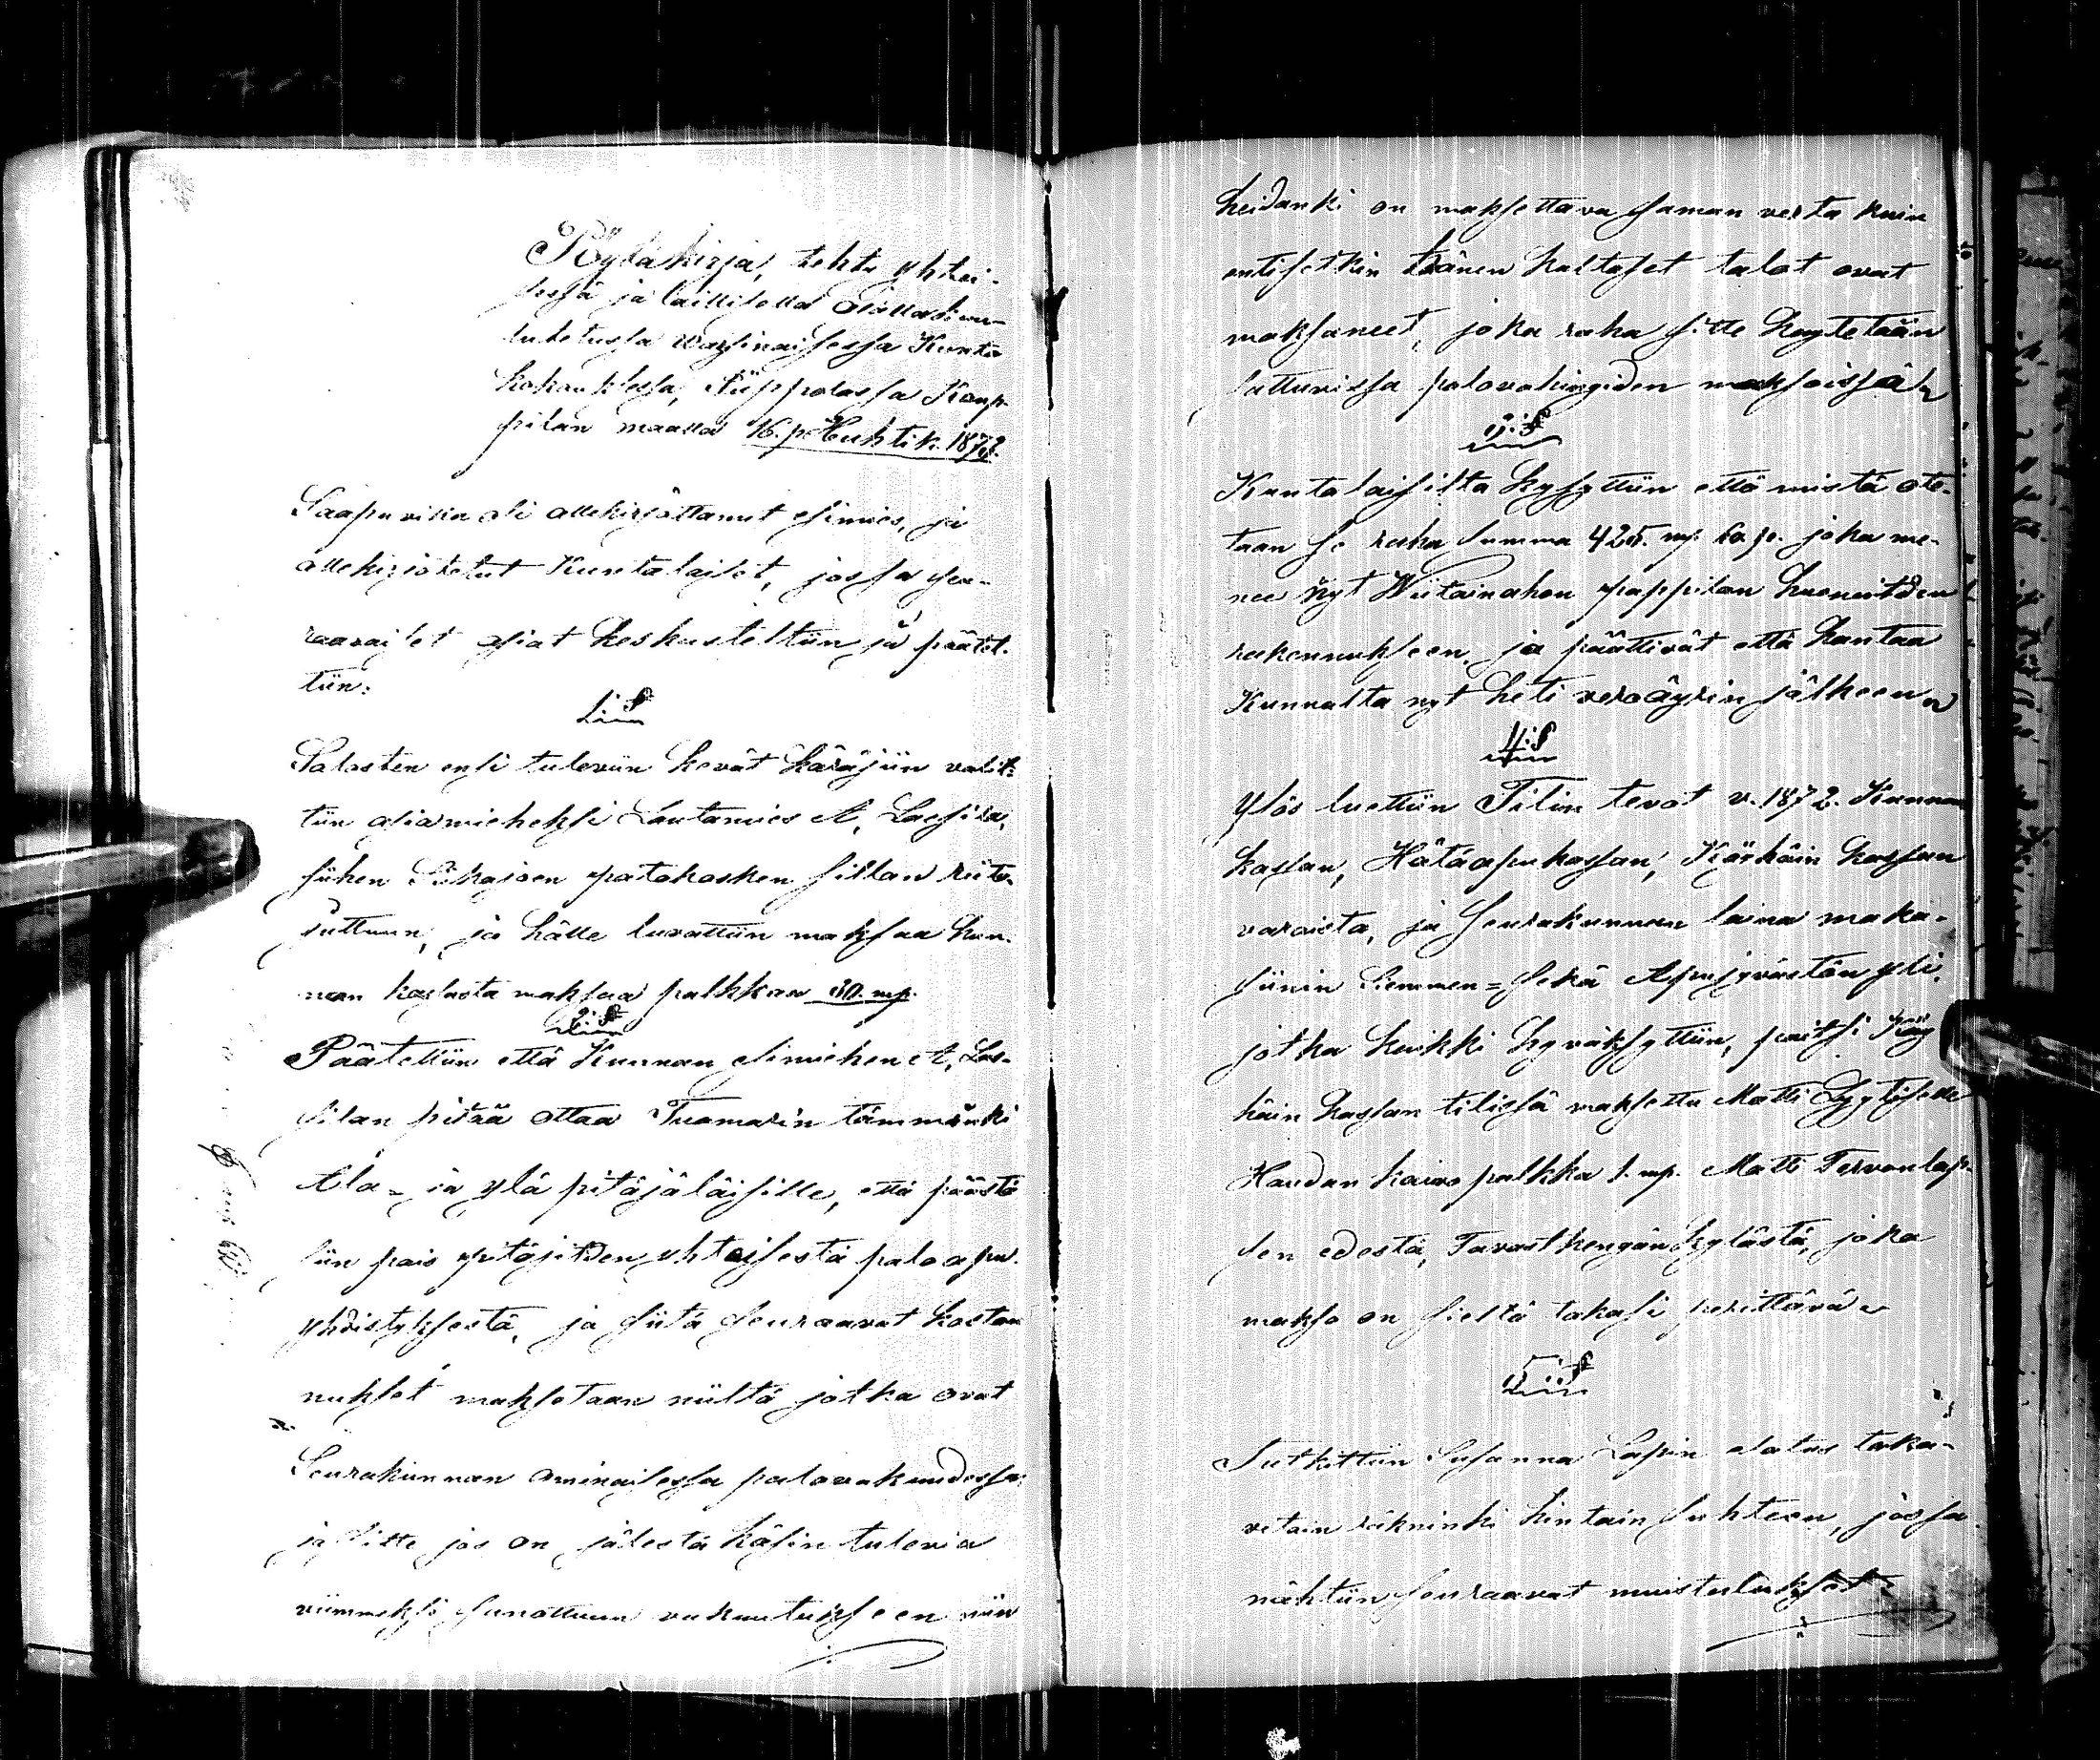 Pöytäkirja, tehty yhtei-
sessä ja laillisella
luhetussa warsinaisessa Kunta
kokouksessa, Piippolassa Kaup-
pilan maalla 16. p. Huhtik. 1873.
Saapuvilla oli allekirjottanut esimies, ja
allekirjoitetut Kuntalaiset, jossa seu-
raavaiset asiat keskusteltiin ja päätet-
tiin:
1. §
Salosten ensi tuleviin kevät käräjiin valit-
tiin asiamieheksi Lautamies A. Lassila,
siihen Siikajoen patokosken sillan riita
juttuun, ja hälle luvattiin maksaa kun-
nan kassasta maksaa palkkaa 30. mp.
2. §
Päätettiin että Kunnan esimiehen A. Las-
silan pitää ottaa Tuomarin tämmäinki
Ala- ja ylä pitäjäläisille, että päästä
siin pois pitäjitden yhteisestä paloapu-
yhdistyksestä, ja siitä seuraavat kostan
nukset maksetaan niiltä jotka ovat
Seurakunnan ominaisessa palovakuudessa,
ja sitte jos on jälestä käsin tulevia
viimmeksi sanottuun vakuutukseen niin
heidänki on maksettava saman verta kuin
entisetkin täänen kaltaset talot ovat
maksaneet, joka raha sitte käytetään
sattuvissa palovahingiden maksoissa
3. §
Kuntalaisilta kysyttiin että mistä ote-
taan se raha summa 425. mp. joka me-
nee nyt Wiitainahon pappilan huoneitden
rakennukseen, ja päättivät että kantaa
Kunnalta nyt heti veroäyrin jälkeen
4. §
Ylös luettiin Tilin teot v. 1872. Kunnan
kassan, Hätäapukassan, Kärhäin kassan
varoista, ja Seurakunnan laina maka-
siinin Siemmen- sekä Apujyvästön yli,
jotka kaikki hyväksyttiin, paitsi Kär
häin kassan tilissä maksettu Matti Lyytiselle
Haudan kaivo palkka 1. mp. Matti Tervon lap-
sen edestä, Tavastkengän kylästä, joka
makso on sieltä takasi perittävä
5. §
Tutkittiin Susanna Lapin elatus taka-
vetoin räkninki hintain suhteen, jossa
nähtiin seuraavat muistutukset